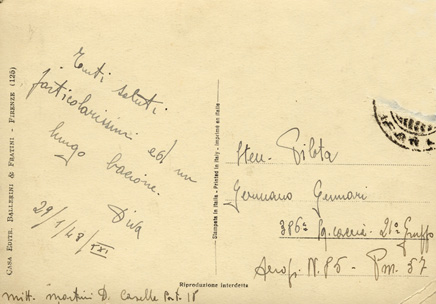 Tanti saluti
particolarissimi ed un
lungo bacione.
Diva
29/1/43/XXI
mitt. Martini D. Caselle Post. 18
CASA EDITR. BALLERINI & FRATINI - FIRENZE (125)
Stampata in Italia - Printed in Italy - Imprimé en Italie
Riproduzione interdetta
Pilota
Germano Gennari
386ª Sq. Caccia 21° Gruppo
Aerop. N. 85 - Pm. 57